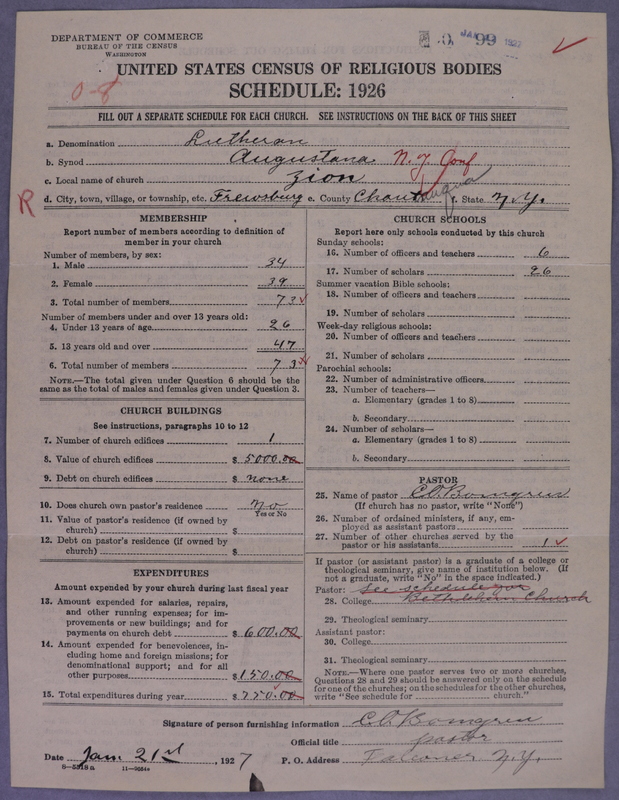 DEPARTMENT OF COMMERCE
BUREAU OF THE CENSUS
WASHINGTON
JAN 29 1927
UNITED STATES CENSUS OF RELIGIOUS BODIES
0-8
SCHEDULE: 1926
FILL OUT A SEPARATE SCHEDULE FOR EACH CHURCH. SEE INSTRUCTIONS ON THE BACK OF THIS SHEET
a. Denomination Lutheran
b. Synod Augustana N.Y. Conf
c. Local name of church Zion
R
d. City, town, village, or township, etc. Frewsburg e. County Chautauqua f. State N.Y.
MEMBERSHIP
Report number of members according to definition of
member in your church
Number of members, by sex:
1. Male 34
2. Female 39
3. Total number of members 73
Number of members under and over 13 years old:
4. Under 13 years of age 26
5. 13 years old and over 47
6. Total number of members 73
NOTE.—The total given under Question 6 should be the
same as the total of males and females given under Question 3.
CHURCH BUILDINGS
See instructions, paragraphs 10 to 12
7. Number of church edifices 1
8. Value of church edifices $ 5000.00
9. Debt on church edifices $ none
10. Does church own pastor's residence No
Yes or No
11. Value of pastor's residence (if owned by
church) $
12. Debt on pastor's residence (if owned by
church) $
EXPENDITURES
Amount expended by your church during last fiscal year
13. Amount expended for salaries, repairs,
and other running expenses; for im-
provements or new buildings; and for
payments on church debt $ 600.00
14. Amount expended for benevolences, in-
cluding home and foreign missions; for
denominational support; and for all
other purposes $ 150.00
15. Total expenditures during year $ 750.00
CHURCH SCHOOLS
Report here only schools conducted by this church
Sunday schools:
16. Number of officers and teachers 6
17. Number of scholars 26
Summer vacation Bible schools:
18. Number of officers and teachers
19. Number of scholars
Week-day religious schools:
20. Number of officers and teachers
21. Number of scholars
Parochial schools:
22. Number of administrative officers
23. Number of teachers—
a. Elementary (grades 1 to 8)
b. Secondary
24. Number of scholars—
a. Elementary (grades 1 to 8)
b. Secondary
PASTOR
25. Name of pastor C.O. Bomgren
(If church has no pastor, write "None")
26. Number of ordained ministers, if any, em-
ployed as assistant pastors
27. Number of other churches served by the
pastor or his assistants 1
If pastor (or assistant pastor) is a graduate of a college or
theological seminary, give name of institution below. (If
not a graduate, write "No" in the space indicated.)
Pastor: See schedule for
28. College Bethlehem Church
29. Theological seminary
Assistant pastor:
30. College
31. Theological seminary
NOTE.—Where one pastor serves two or more churches,
Questions 28 and 29 should be answered only on the schedule
for one of the churches; on the schedules for the other churches,
write "See schedule for church."
Signature of person furnishing information C.O. Bomgren
Official title pastor
Date Jan. 21st, 1927 P. O. Address Falconer N.Y.